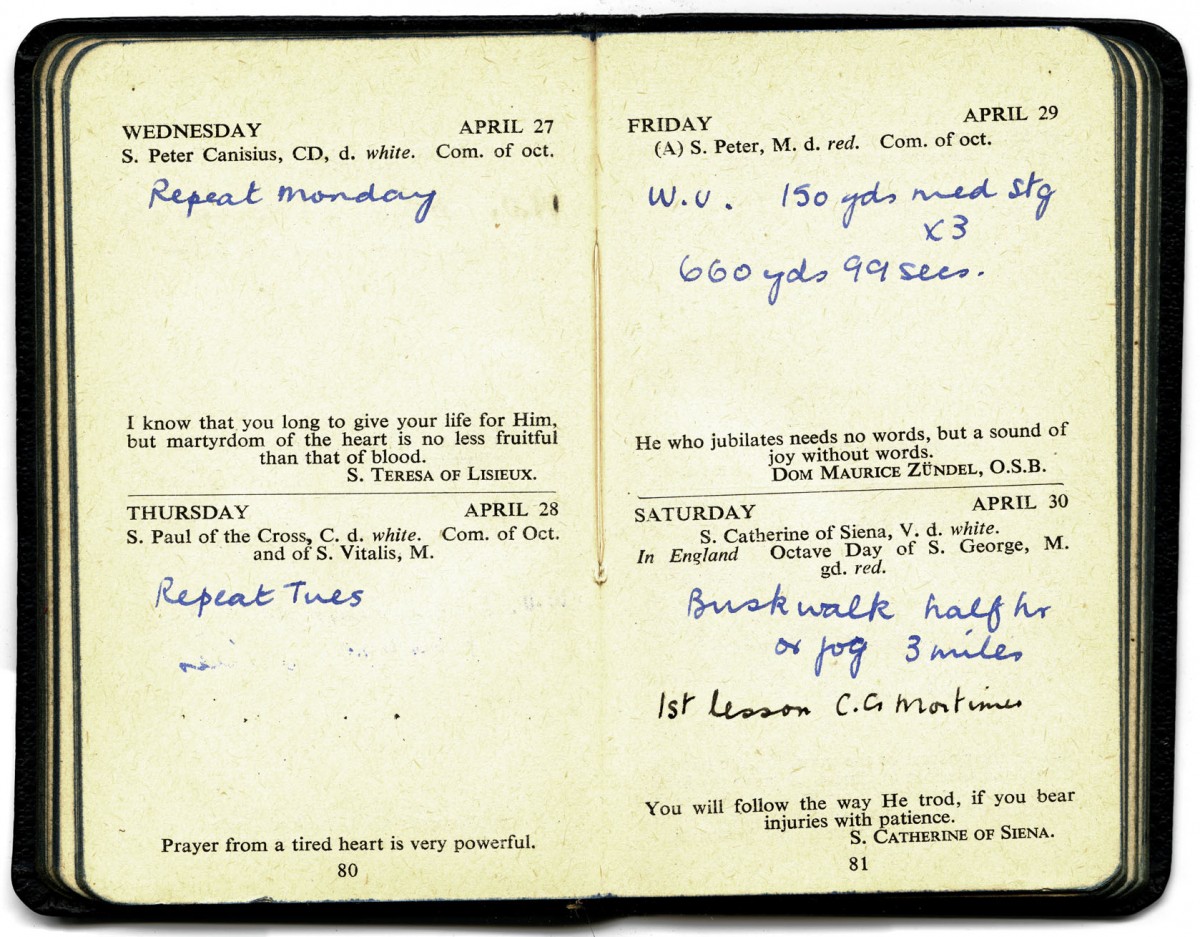 WEDNESDAY APRIL 27
S. Peter Canisius, CD, d. white. Com. of oct.
Repeat Monday
I know that you long to give your life for Him,
but martyrdom of the heart is no less fruitful
than that of blood.
S. TERESA OF LISIEUX.
THURSDAY APRIL 28
S. Paul of the Cross, C. d. white. Com. of Oct.
and of S. Vitalis, M.
Repeat Tues
Prayer from a tired heart is very powerful.
80
FRIDAY APRIL 29
(A) S. Peter, M. d. red. Com. of oct.
W.U. 150 yds med stg
x3
660 yds 99 secs.
He who jubilates needs no words, but a sound of
joy without words.
DOM MAURICE ZÜNDEL, O.S.B.
SATURDAY APRIL 30
S. Catherine of Siena, V. d. white.
In England Octave Day of S. George, M.
gd. red.
Buskwalk half hr
or jog 3 miles
1st lesson C.G Mortimer
You will follow the way He trod, if you bear
injuries with patience.
S. CATHERINE OF SIENA.
81